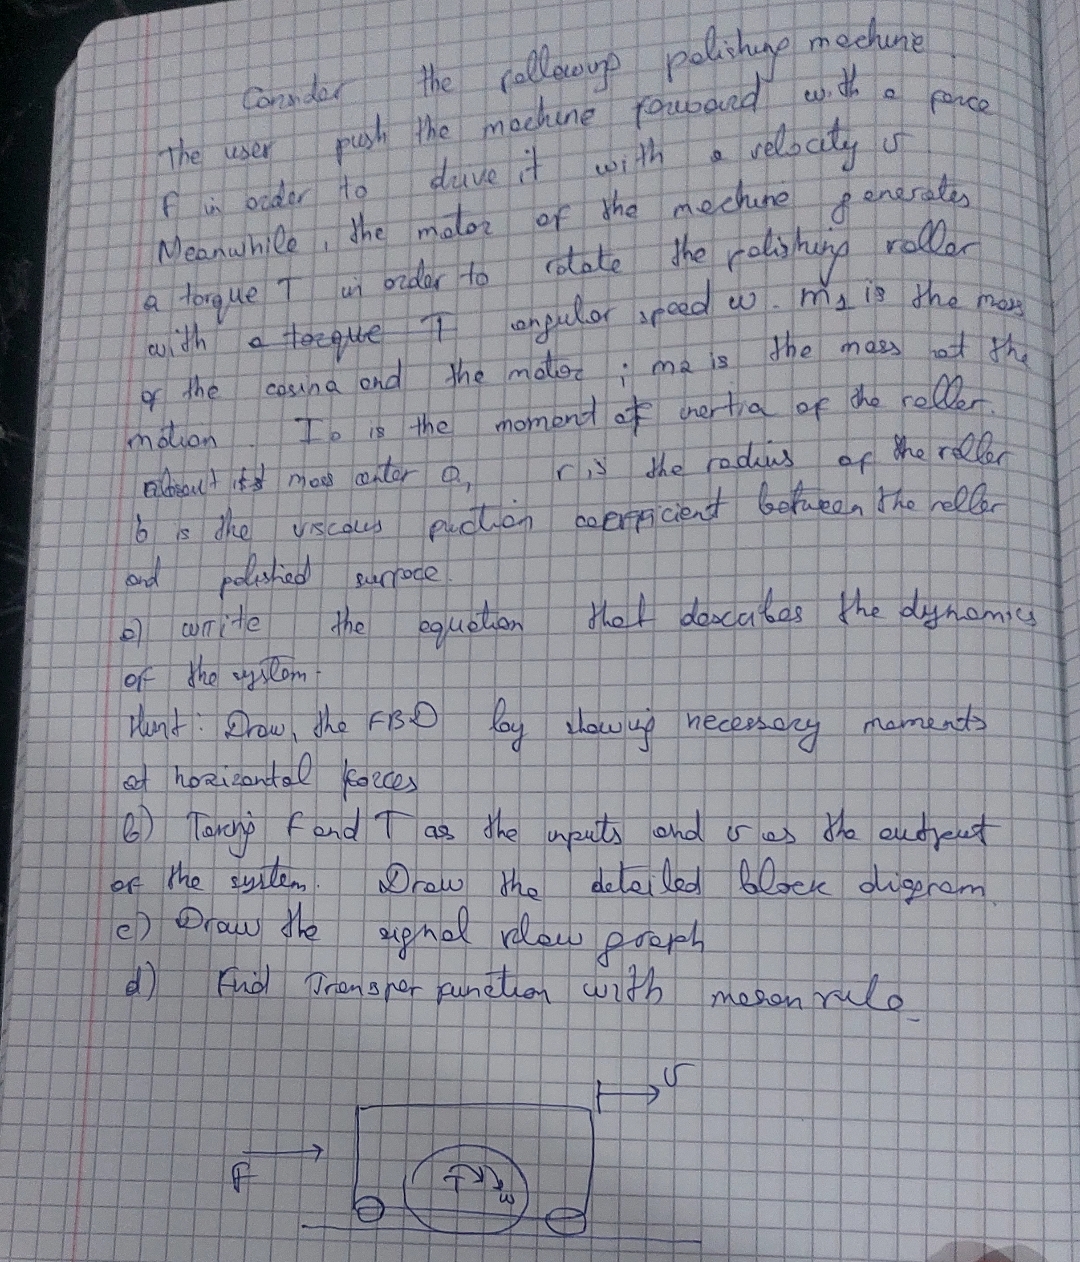 Consider the following polishing mechine
the user push the machine forward with a force
f in order to drive it with a velocity v
Meanwhile, the motor of the mechine generates
a torque T in order to rotate the polishing roller
with a torque T angular speed w. m1 is the mass
of the casing and the motor ; m2 is the mass of the
motion . Io is the moment of inertia of the roller.
about its mass center O, r is the radius of the roller
b is the viscous friction coefficient between the roller
and polished surface.
a) write the equation that describes the dynamics
of the system.
Hint: Draw, the FBD by showing necessary moments
of horizontal forces
b) Taking f and T as the inputs and v as the output
of the system. Draw the detailed block digram.
c) Draw the signal flow graph
d) Find Transfer function with meson rule
v
F
T w